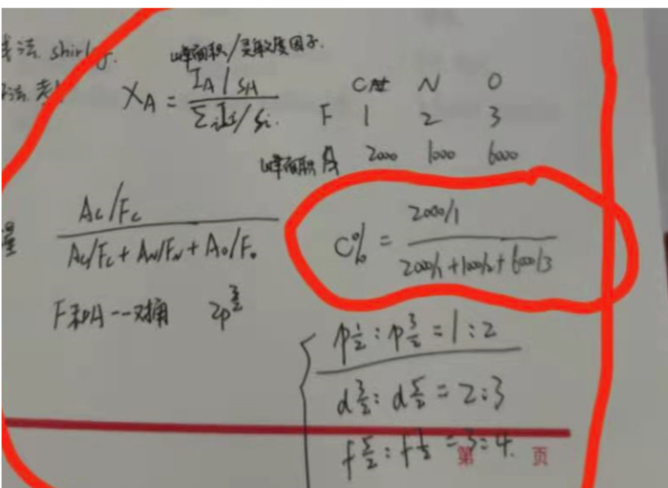 法 shirley.
峰面积/灵敏度因子.
X_A = (I_A/S_A) / (Σ_i I_i/S_i)
C N O
F 1 2 3
峰面积 A 2000 1000 6000
A_C/F_C
A_C/F_C + A_N/F_N + A_O/F_O
量
C% = (2000/1) / (2000/1 + 1000/2 + 6000/3)
F和A一一对 2p 3/2
p 1/2 : p 3/2 = 1:2
d 3/2 : d 5/2 = 2:3
f 5/2 : f = 3:4.
第 页